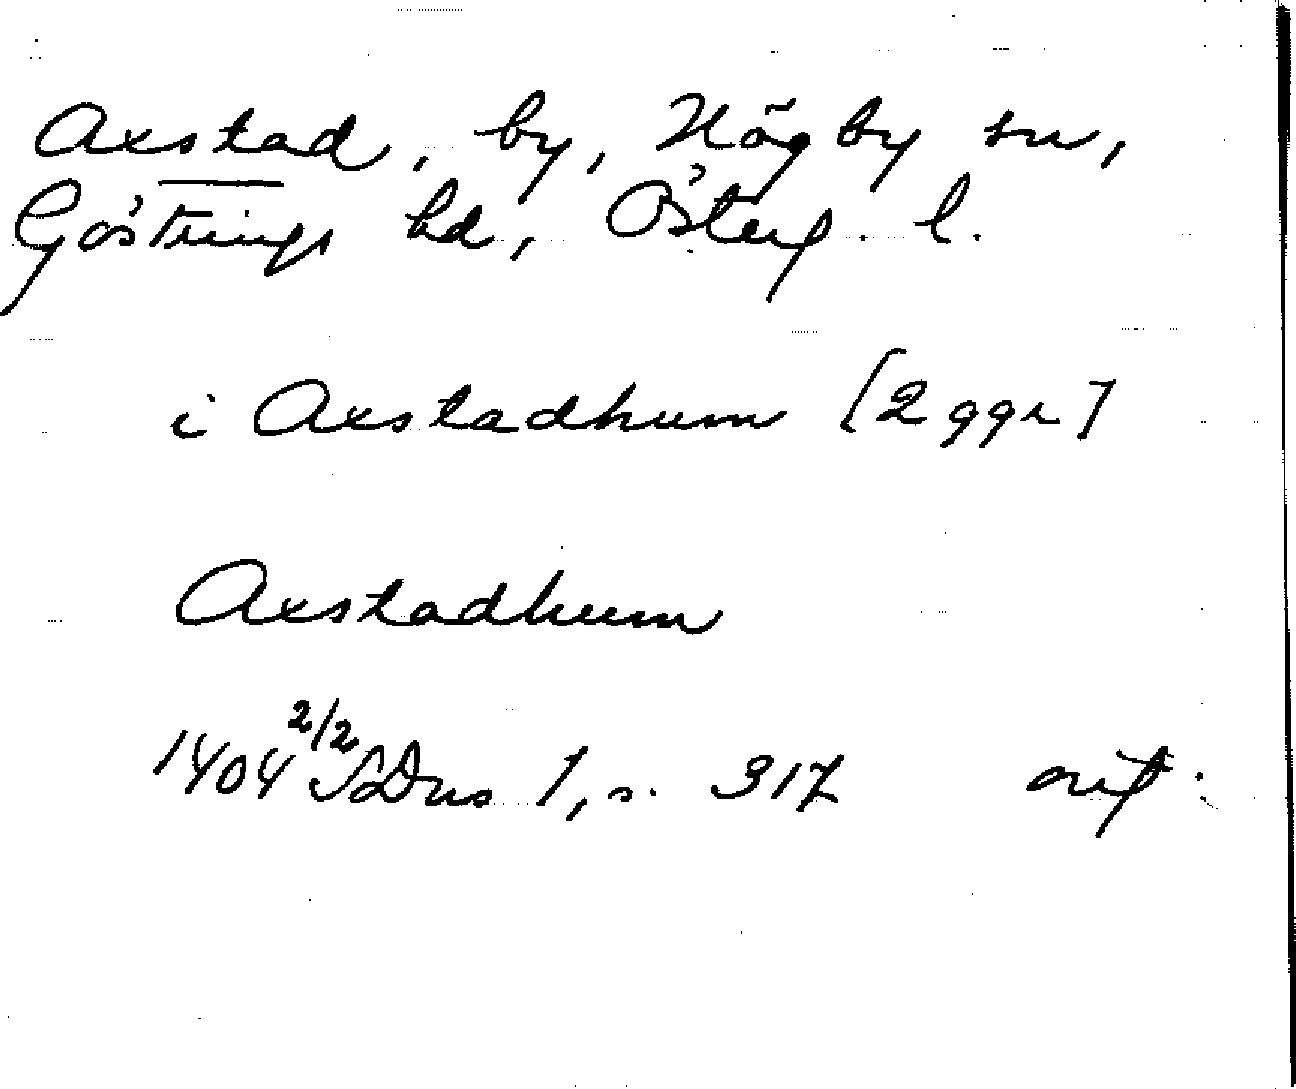 Axstad, by, Högby sn,
Göstrings hd, Österg. l.
i Axstadhum [2 ggr]
Axstadhum
1404 2/2 SDns 1, s. 317 orig.